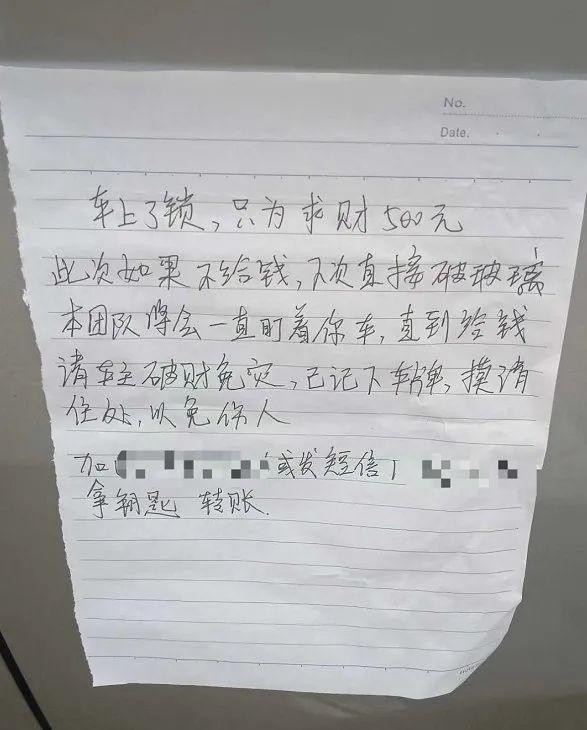 No.
Date.
车上了锁，只为求财500元
此次如果不给钱，下次直接破玻璃
本团队将会一直盯着你车，直到给钱
请车主破财免灾，已记下车牌，摸清
住处，以免伤人
加 或发短信
拿钥匙 转账.